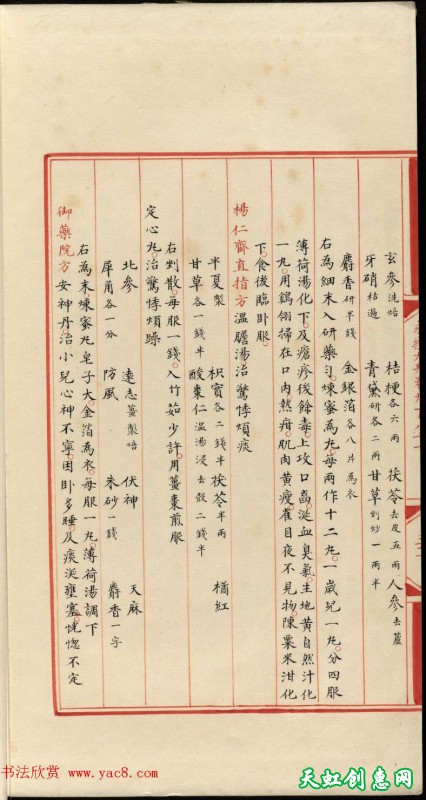 玄參洗焙 桔梗各六兩 茯苓去皮五兩 人參去蘆
牙硝枯過 青黛研各二兩 甘草剉炒一兩半
麝香研半錢 金銀箔各八片為衣
右為細末入研藥勻煉蜜為丸每兩作十二丸一歲兒一丸分四服
薄荷湯化下及瘡疹後餘毒上攻口齒涎血臭氣生地黃自然汁化
一丸用鷄翎掃在口內熱疳肌肉黃瘦雀目夜不見物陳粟米泔化
下食後臨臥服
楊仁齋直指方溫膽湯治驚悸煩痰
半夏製 枳實各二錢半 茯苓半兩 橘紅
甘草各一錢半 酸棗仁溫湯浸去殼二錢半
右剉散每服一錢入竹茹少許用薑棗煎服
定心丸治驚悸煩躁
北參 遠志薑製焙 伏神 天麻
犀角各一分 防風 朱砂一錢 麝香一字
右為末煉蜜丸皂子大金箔為衣每服一丸薄荷湯調下
御藥院方安神丹治小兒心神不寧困臥多睡及痰涎壅塞恍惚不定
书法欣赏 www.yac8.com
天虹创惠网